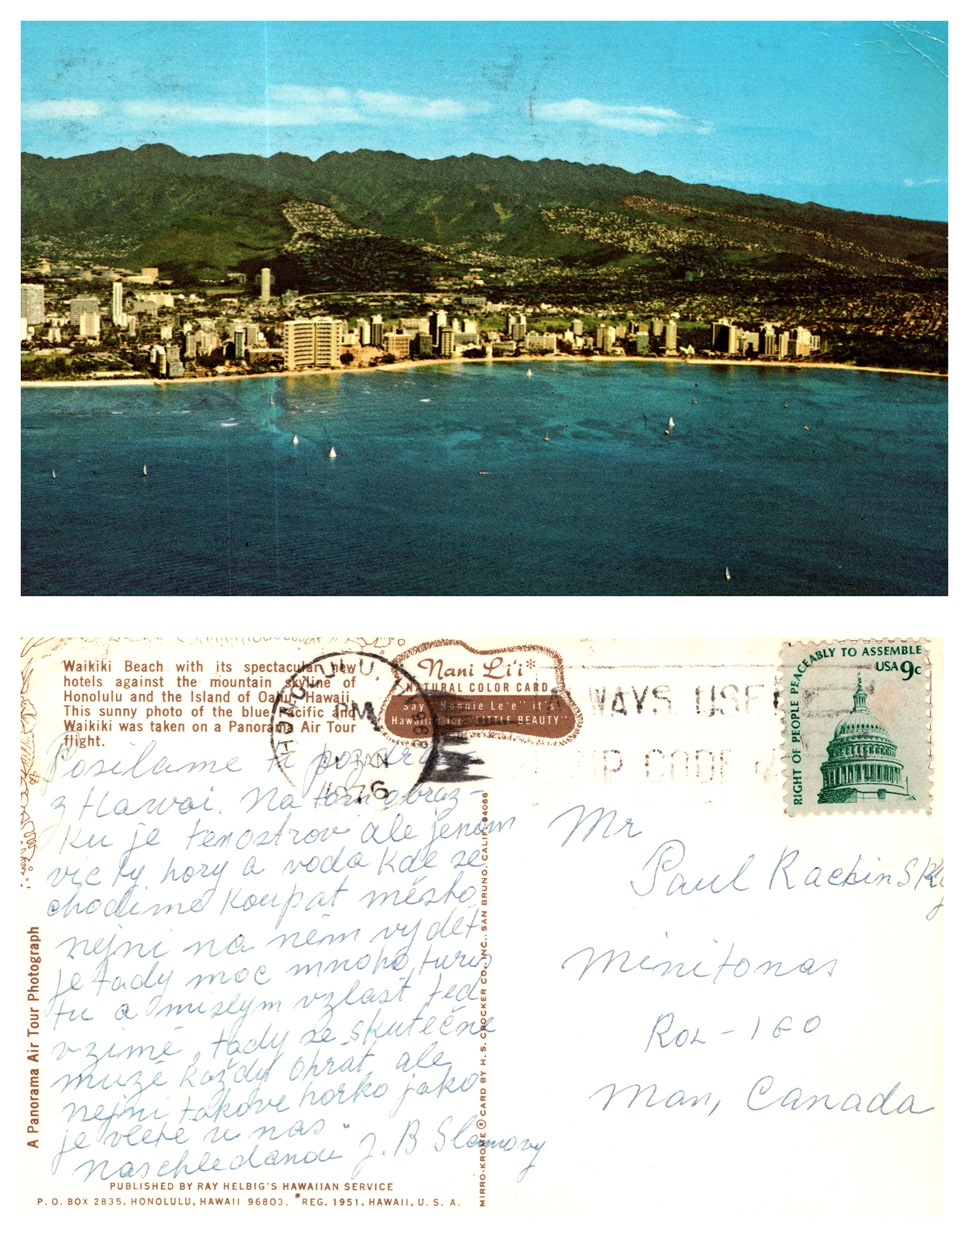 Waikiki Beach with its spectacular new
hotels against the mountain skyline of
Honolulu and the Island of Oahu, Hawaii.
This sunny photo of the blue Pacific and
Waikiki was taken on a Panorama Air Tour
flight.
Nani Li'i*
NATURAL COLOR CARD
Say "Nonnie Lee'e" it's
Hawaiian for "LITTLE BEAUTY"
HONOLULU, HI
PM
JAN
1976
WAYS USE
ZIP CODE
RIGHT OF PEOPLE PEACEABLY TO ASSEMBLE
USA 9c
Posilame ti pozdrav
z Hawai. Na tom obráz-
ku je tenostrov ale jenom
vic ty hory a voda kde se
chodime koupat město
nejni na něm vydět
je tady moc mnoho turis
tu a muslym vzlast ted
v zimě, tady se skutečně
muzě každy ohrat ale
nejni takove horko jako
je v letě u nas.
naschledanou J. B. Slamovy
Mr
Paul Rachinsky
Minitonas
ROL-1G0
Man, Canada
A Panorama Air Tour Photograph
MIRRO-KROME ® CARD BY H. S. CROCKER CO., INC., SAN BRUNO, CALIF. 94066
PUBLISHED BY RAY HELBIG'S HAWAIIAN SERVICE
P. O. BOX 2835, HONOLULU, HAWAII 96803. *REG. 1951, HAWAII, U. S. A.